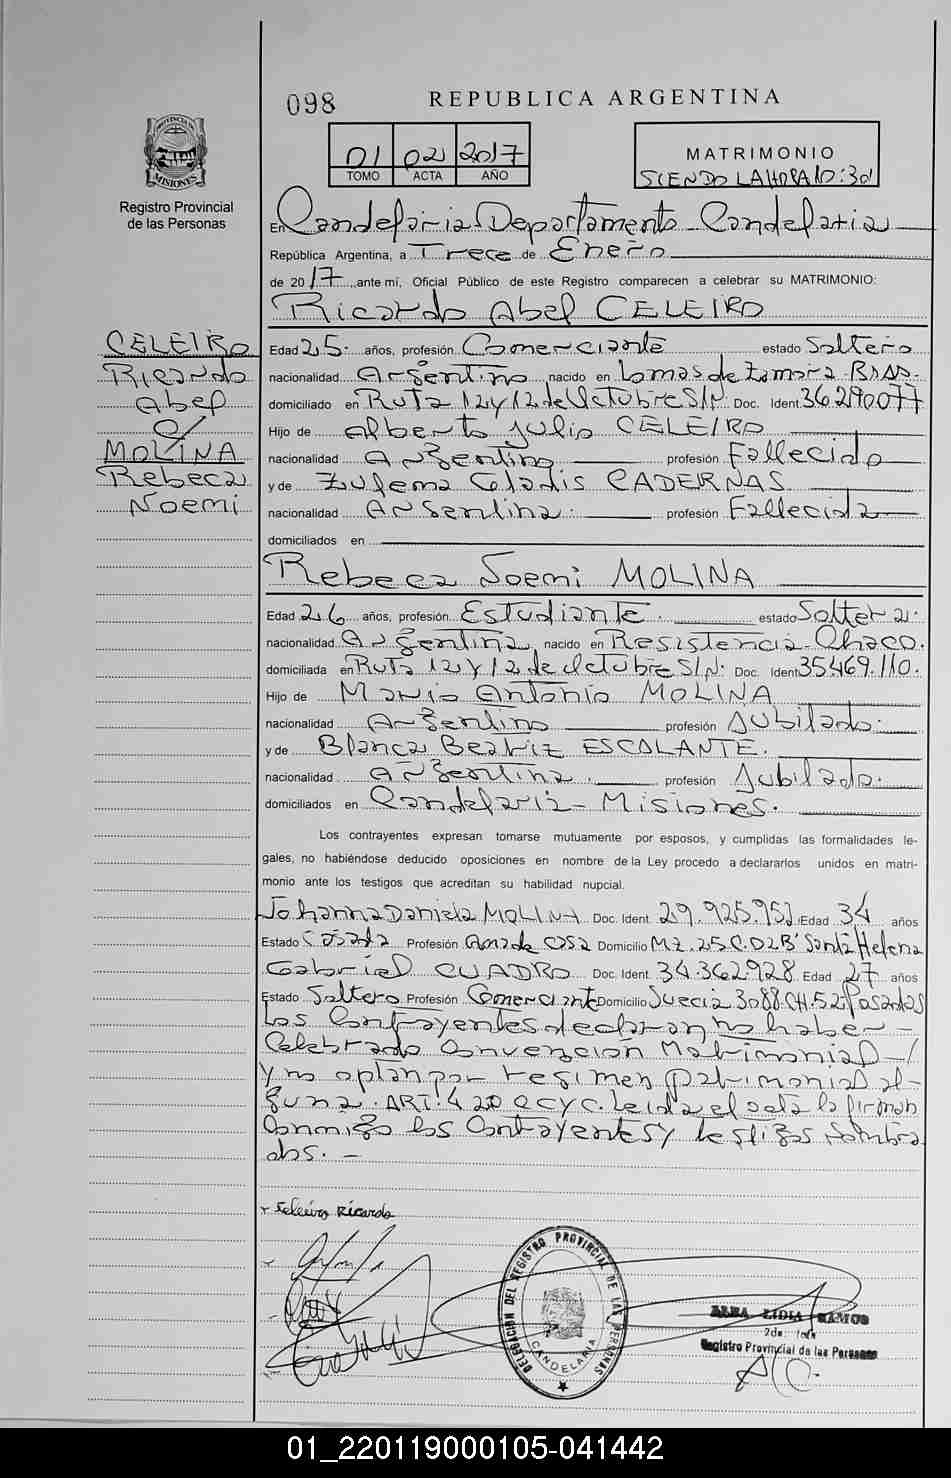 098
REPUBLICA ARGENTINA
PROVINCIA DE
MISIONES
Registro Provincial
de las Personas
01 02 2017
TOMO ACTA AÑO
MATRIMONIO
SIENDO LA HORA 10:30
En Candelaria-Departamento Candelaria
República Argentina, a Trece de Enero
de 2017 ante mí, Oficial Público de este Registro comparecen a celebrar su MATRIMONIO:
Ricardo Abel CELEIRO
CELEIRO
Ricardo
Abel
MOLINA
Rebeca
Noemi
Edad 25. años, profesión Comerciante estado Soltero
nacionalidad Argentino nacido en Lomas de Zamora-BsAs.
domiciliado en Ruta 12 y 12 de Octubre S/N Doc. Ident. 36.290077
Hijo de Alberto Julio CELEIRO
nacionalidad Argentino profesión Fallecido
y de Zulema Gladis CADERNAS
nacionalidad Argentina. profesión Fallecida
domiciliados en
Rebeca Noemi MOLINA
Edad 26 años, profesión Estudiante. estado Soltera.
nacionalidad Argentina nacido en Resistencia-Chaco.
domiciliada en Ruta 12 y 12 de Octubre S/N. Doc. Ident 35.469.110.
Hijo de Mario Antonio MOLINA
nacionalidad Argentino profesión Jubilado.
y de Blanca Beatriz ESCALANTE.
nacionalidad Argentina. profesión Jubilada.
domiciliados en Candelaria-Misiones.
Los contrayentes expresan tomarse mutuamente por esposos, y cumplidas las formalidades le-
gales, no habiéndose deducido oposiciones en nombre de la Ley procedo a declararlos unidos en matri-
monio ante los testigos que acreditan su habilidad nupcial.
Johanna Daniela MOLINA Doc. Ident. 29.925.952 Edad 34 años
Estado Casada Profesión Ama de casa Domicilio MZ.25 C.D2B' Santa Helena
Gabriel CUADRO Doc. Ident. 34.362.928 Edad 27 años
Estado Soltero Profesión Comerciante Domicilio Suecia 3088.CH.52 Posadas
Los Contrayentes declaran no haber-
Celebrado Convención Matrimonial-/
y no optan por regimen patrimonial al-
guna. ART: 420 CCYC. Leida el acta la firman
Conmigo los Contrayentes y testigos nombra
dos.-
x Celeiro Ricardo
DELEGACION DEL REGISTRO PROVINCIAL DE LAS PERSONAS
CANDELARIA
LIDIA RAMOS
Registro Provincial de las Personas
01_220119000105-041442